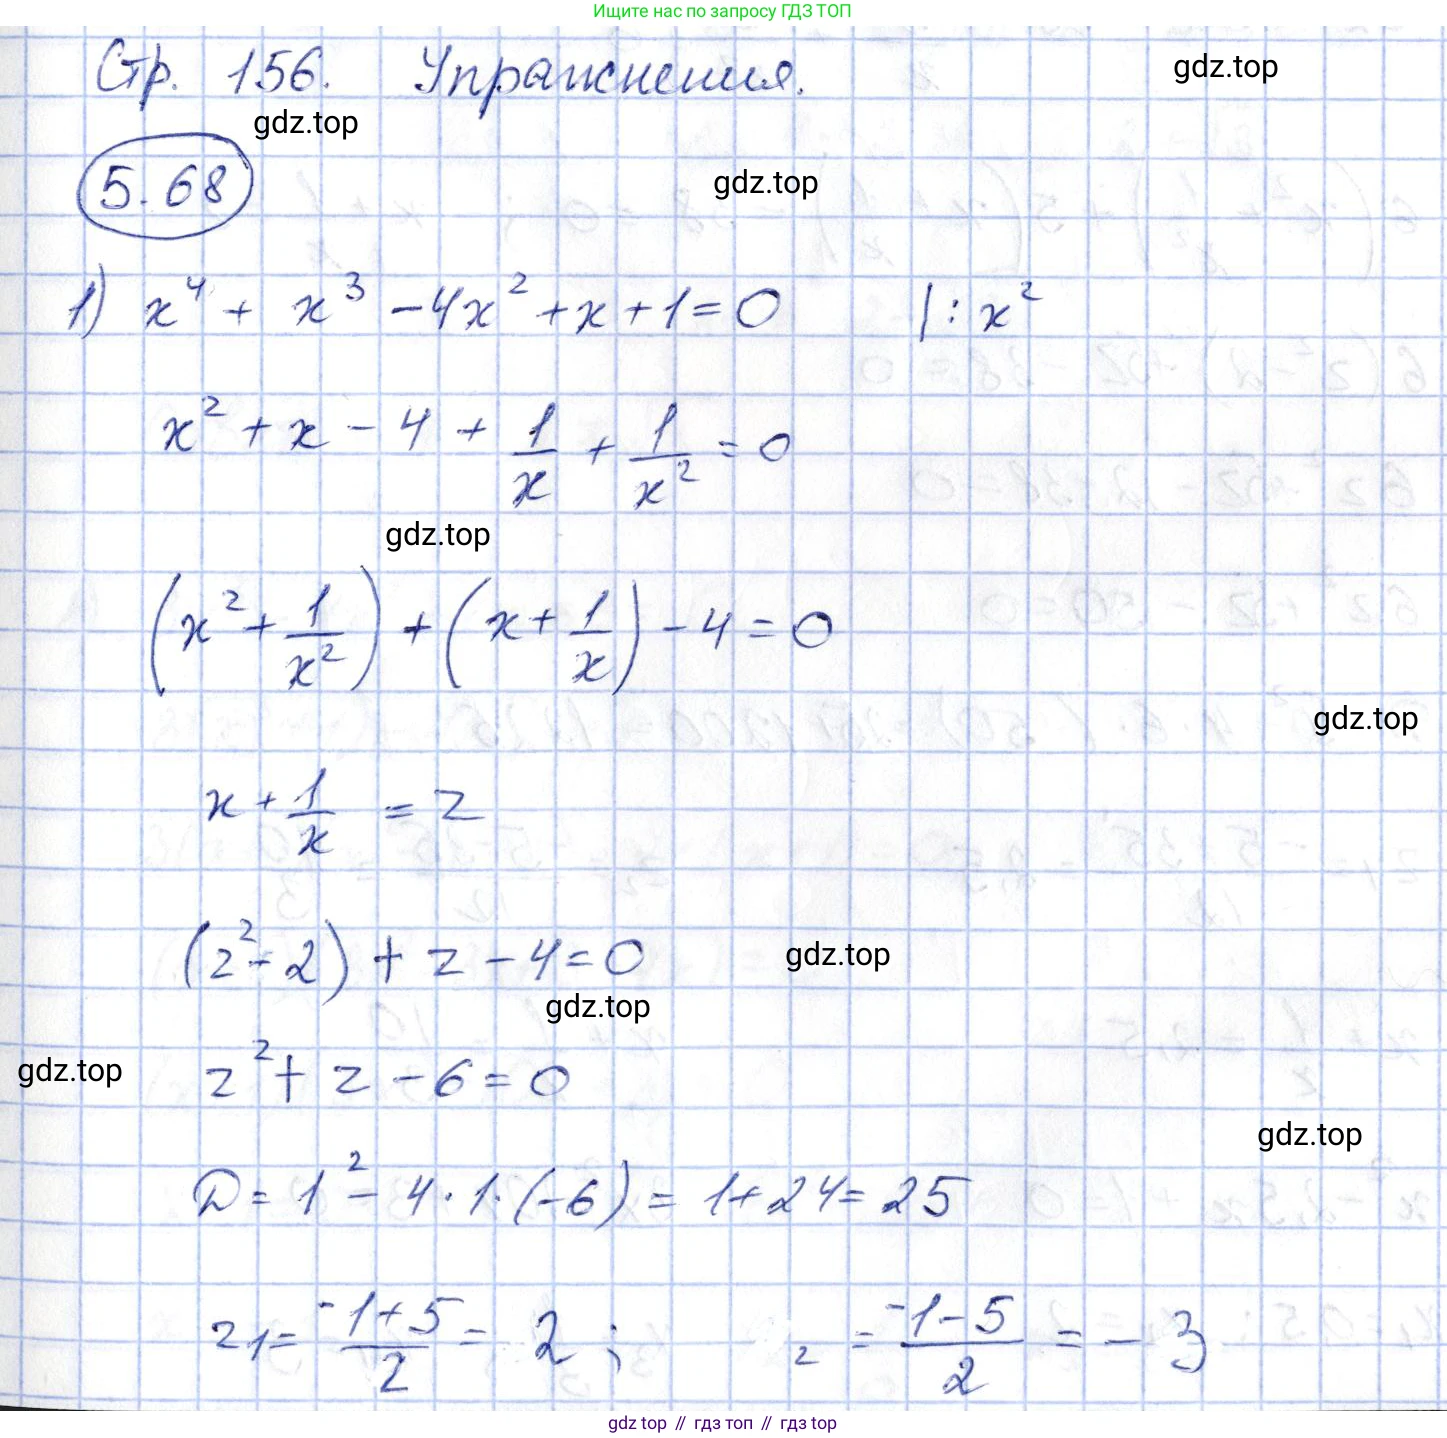 Ищите нас по запросу ГДЗ ТОП
Стр. 156. Упражнения.
gdz.top
gdz.top
5.68
gdz.top
1) x⁴ + x³ - 4x² + x + 1 = 0 |: x²
x² + x - 4 + 1/x + 1/x² = 0
gdz.top
(x² + 1/x²) + (x + 1/x) - 4 = 0
gdz.top
x + 1/x = z
(z² - 2) + z - 4 = 0
gdz.top
gdz.top
z² + z - 6 = 0
gdz.top
gdz.top
D = 1² - 4 · 1 · (-6) = 1 + 24 = 25
z1 = (-1+5)/2 = 2 ; 2 = (-1-5)/2 = -3
gdz top // гдз топ // гдз top